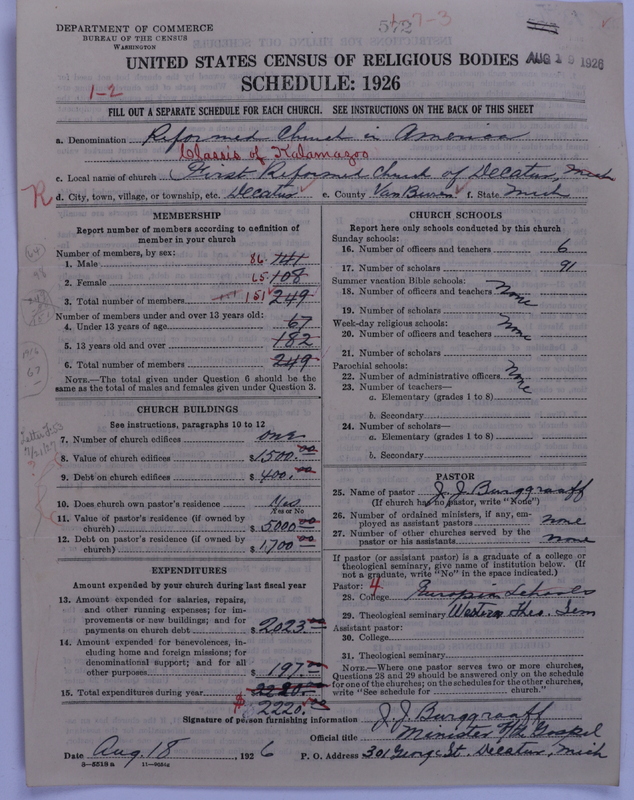 DEPARTMENT OF COMMERCE
BUREAU OF THE CENSUS
WASHINGTON
AUG 19 1926
UNITED STATES CENSUS OF RELIGIOUS BODIES
SCHEDULE: 1926
1-2
FILL OUT A SEPARATE SCHEDULE FOR EACH CHURCH. SEE INSTRUCTIONS ON THE BACK OF THIS SHEET
a. Denomination Reformed Church in America
Classis of Kalamazoo
c. Local name of church First Reformed Church of Decatur, Mich
R d. City, town, village, or township, etc. Decatur e. County Van Buren f. State Mich
MEMBERSHIP
Report number of members according to definition of member in your church
Number of members, by sex:
1. Male 86 141
2. Female 65 108
3. Total number of members 151 249
Number of members under and over 13 years old:
4. Under 13 years of age 67
5. 13 years old and over 182
6. Total number of members 249
NOTE.—The total given under Question 6 should be the same as the total of males and females given under Question 3.
CHURCH BUILDINGS
See instructions, paragraphs 10 to 12
7. Number of church edifices one
8. Value of church edifices $1500.00
9. Debt on church edifices $400.00
10. Does church own pastor's residence Yes
Yes or No
11. Value of pastor's residence (if owned by church) $5000.00
12. Debt on pastor's residence (if owned by church) $1700.00
EXPENDITURES
Amount expended by your church during last fiscal year
13. Amount expended for salaries, repairs, and other running expenses; for improvements or new buildings; and for payments on church debt $2023.00
14. Amount expended for benevolences, including home and foreign missions; for denominational support; and for all other purposes $197.00
15. Total expenditures during year $2220.00
$2220.00
CHURCH SCHOOLS
Report here only schools conducted by this church
Sunday schools:
16. Number of officers and teachers 6
17. Number of scholars 91
Summer vacation Bible schools:
18. Number of officers and teachers None
19. Number of scholars
Week-day religious schools:
20. Number of officers and teachers None
21. Number of scholars
Parochial schools:
22. Number of administrative officers None
23. Number of teachers—
a. Elementary (grades 1 to 8)
b. Secondary
24. Number of scholars—
a. Elementary (grades 1 to 8)
b. Secondary
PASTOR
25. Name of pastor J. J. Burggraaff
(If church has no pastor, write "None")
26. Number of ordained ministers, if any, employed as assistant pastors none
27. Number of other churches served by the pastor or his assistants none
If pastor (or assistant pastor) is a graduate of a college or theological seminary, give name of institution below. (If not a graduate, write "No" in the space indicated.)
Pastor: 4
28. College Europian Schools
29. Theological seminary Western Theo. Sem
Assistant pastor:
30. College
31. Theological seminary
NOTE.—Where one pastor serves two or more churches, Questions 28 and 29 should be answered only on the schedule for one of the churches; on the schedules for the other churches, write "See schedule for church."
Signature of person furnishing information J. J. Burggraaff
Official title Minister of the Gospel
Date Aug. 18, 1926 P. O. Address 301 George St. Decatur, Mich
8—5518 a